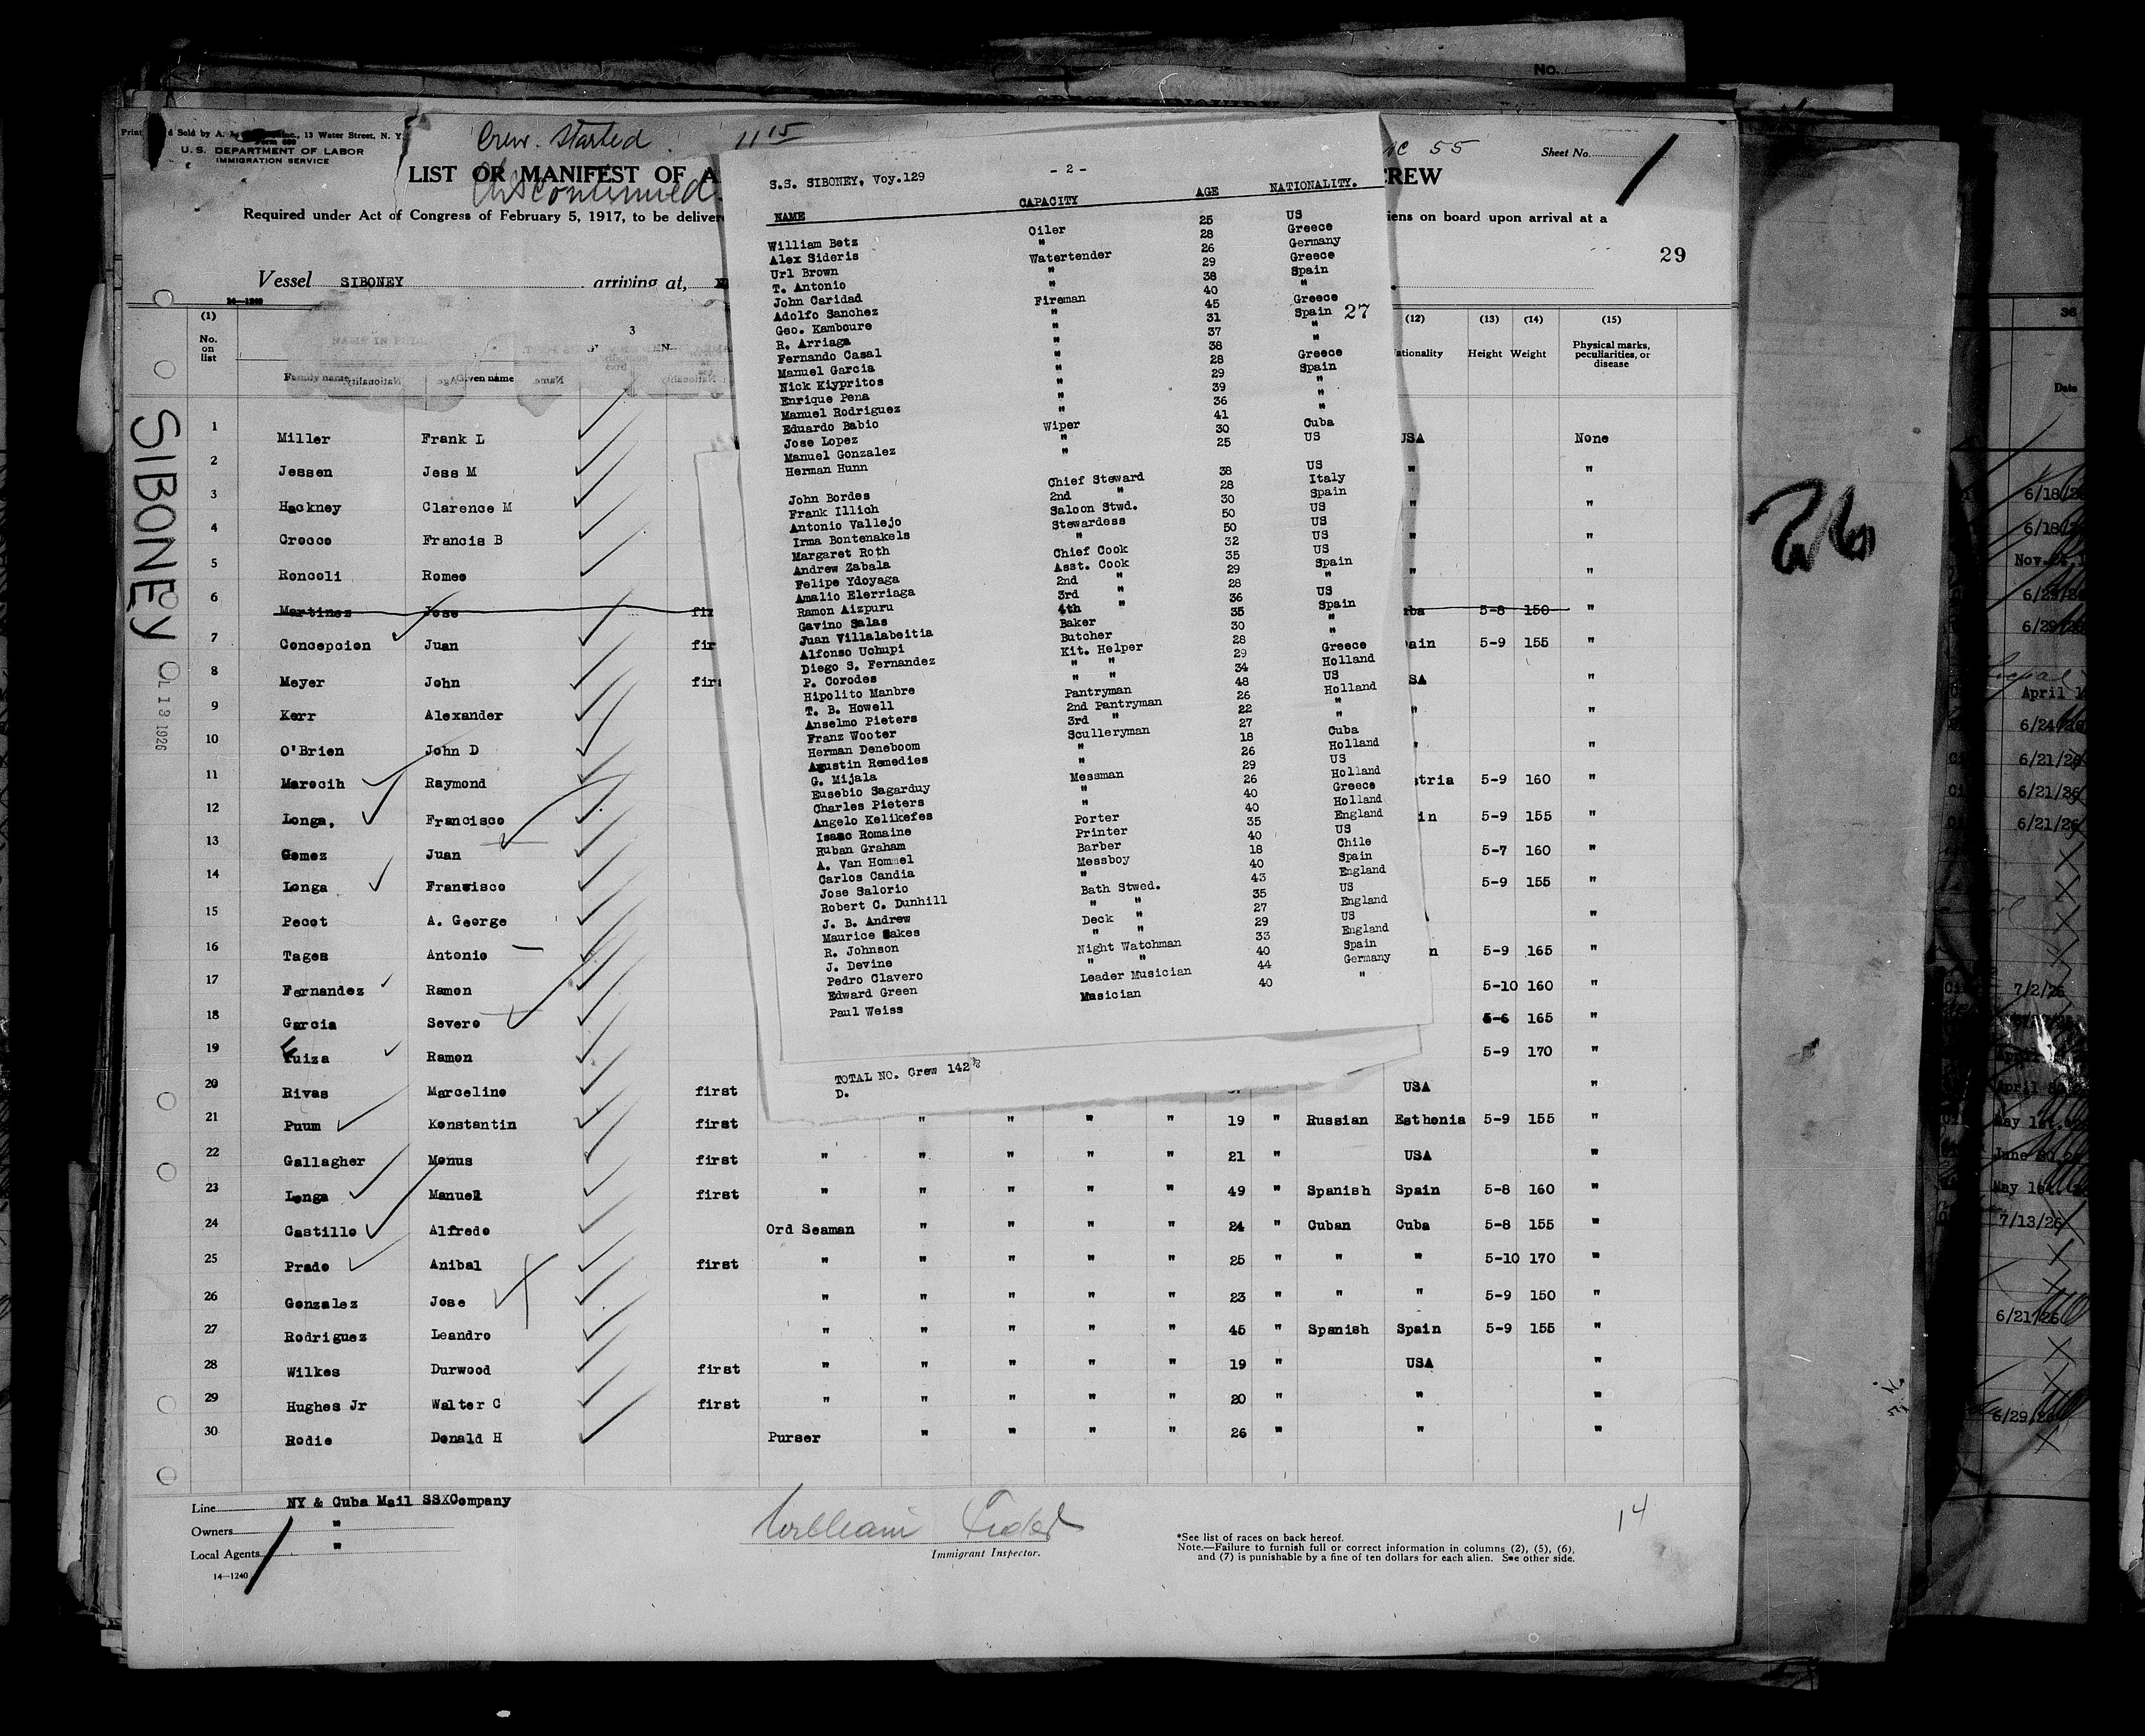 No.
Sold by A.
Inc., 13 Water Street, N. Y.
U. S. DEPARTMENT OF LABOR
IMMIGRATION SERVICE
Crew. Started 11 15
Discontinued
55
Sheet No.
LIST OR MANIFEST OF A
CREW
Required under Act of Congress of February 5, 1917, to be deliver
iens on board upon arrival at a
29
Vessel SIBONEY arriving at,
14—1240
(1) No. on list
Family name
Given name
3
(12)
ationality
(13) Height
(14) Weight
(15) Physical marks, peculiarities, or disease
SIBONEY
13 1926
1 Miller Frank L USA None
2 Jessen Jess M " "
3 Hackney Clarence M " "
4 Crocco Francis B " "
5 Roncoli Romeo " "
6 Martinez Jose 5-8 150 "
7 Concepcion Juan fir ain 5-9 155 "
8 Meyer John firs SA "
9 Kerr Alexander " "
10 O'Brien John D " "
11 Marocih Raymond stria 5-9 160 "
12 Longa, Francisco in 5-9 155 "
13 Gomez Juan 5-7 160 "
14 Longa Francisco 5-9 155 "
15 Pecot A. George "
16 Tages Antonio n 5-9 165 "
17 Fernandez Ramon 5-10 160 "
18 Garcia Severo 5-6 165 "
19 uiza Ramon 5-9 170 "
20 Rivas Marcelino first USA "
21 Puum Konstantin first " " " " 19 " Russian Esthonia 5-9 155 "
22 Gallagher Monus first " " " " " 21 " USA "
23 Longa Manuel first " " " " " 49 " Spanish Spain 5-8 160 "
24 Castillo Alfredo Ord Seaman " " " " 24 " Cuban Cuba 5-8 155 "
25 Prado Anibal first " " " " " 25 " " " 5-10 170 "
26 Gonzalez Jose " " " " " 23 " " " 5-9 150 "
27 Rodriguez Leandro " " " " " 45 " Spanish Spain 5-9 155 "
28 Wilkes Durwood first " " " " " 19 " USA "
29 Hughes Jr Walter C first " " " " " 20 " " "
30 Rodie Donald H Purser " " " " 26 " " "
Line NY & Cuba Mail SSXCompany
Owners "
Local Agents "
14—1240
William
Immigrant Inspector.
*See list of races on back hereof.
Note.—Failure to furnish full or correct information in columns (2), (5), (6),
and (7) is punishable by a fine of ten dollars for each alien. See other side.
14
S.S. SIBONEY, Voy.129
- 2 -
NAME CAPACITY AGE NATIONALITY.
William Betz Oiler 25 US
Alex Sideris " 28 Greece
Url Brown Watertender 26 Germany
T. Antonio " 29 Greece
John Caridad " 38 Spain
Adolfo Sanchez Fireman 40 "
Geo. Kamboure " 45 Greece
R. Arriaga " 31 Spain
27
Fernando Casal " 37 "
Manuel Garcia " 38 "
Nick Kiypritos " 28 Greece
Enrique Pena " 29 Spain
Manuel Rodriguez " 39 "
Eduardo Babio " 36 "
Jose Lopez Wiper 41 "
Manuel Gonzalez " 30 Cuba
Herman Hunn " 25 US
John Bordes Chief Steward 38 US
Frank Illich 2nd " 28 Italy
Antonio Vallejo Saloon Stwd. 30 Spain
Irma Bontenakels Stewardess 50 US
Margaret Roth " 50 US
Andrew Zabala Chief Cook 32 US
Felipe Ydoyaga Asst. Cook 35 US
Amalio Elerriaga 2nd " 29 Spain
Ramon Aizpuru 3rd " 28 "
Gavino Salas 4th " 36 US
Juan Villalabeitia Baker 35 Spain
Alfonso Uchupi Butcher 30 "
Diego S. Fernandez Kit. Helper 28 "
P. Corodes " " 29 Greece
Hipolito Manbre " " 34 Holland
T. B. Howell Pantryman 48 US
Anselmo Pieters 2nd Pantryman 26 Holland
Franz Wooter 3rd " 22 "
Herman Deneboom Sculleryman 27 "
Agustin Remedies " 18 Cuba
G. Mijala " 26 Holland
Eusebio Sagarduy Messman 29 US
Charles Pieters " 26 Holland
Angelo Kelikefes " 40 Greece
Isaac Romaine Porter 40 Holland
Ruban Graham Printer 35 England
A. Van Hommel Barber 40 US
Carlos Candia Messboy 18 Chile
Jose Salorio " 40 Spain
Robert C. Dunhill Bath Stwed. 43 England
J. B. Andrew " " 35 US
Maurice Sakes Deck " 27 England
R. Johnson " " 29 US
J. Devine Night Watchman 33 England
Pedro Clavero " " 40 Spain
Edward Green Leader Musician 44 Germany
Paul Weiss Musician 40 "
TOTAL NO. Crew 142
D.
26
36
Date
6/18/2
6/18/2
Nov.
6/29/26
6/29/26
April 1
6/24/26
6/21/26
6/21/26
6/21/26
7/2/26
April 30
May 1st
June 30
May 1st
7/13/26
6/21/26
6/29/26